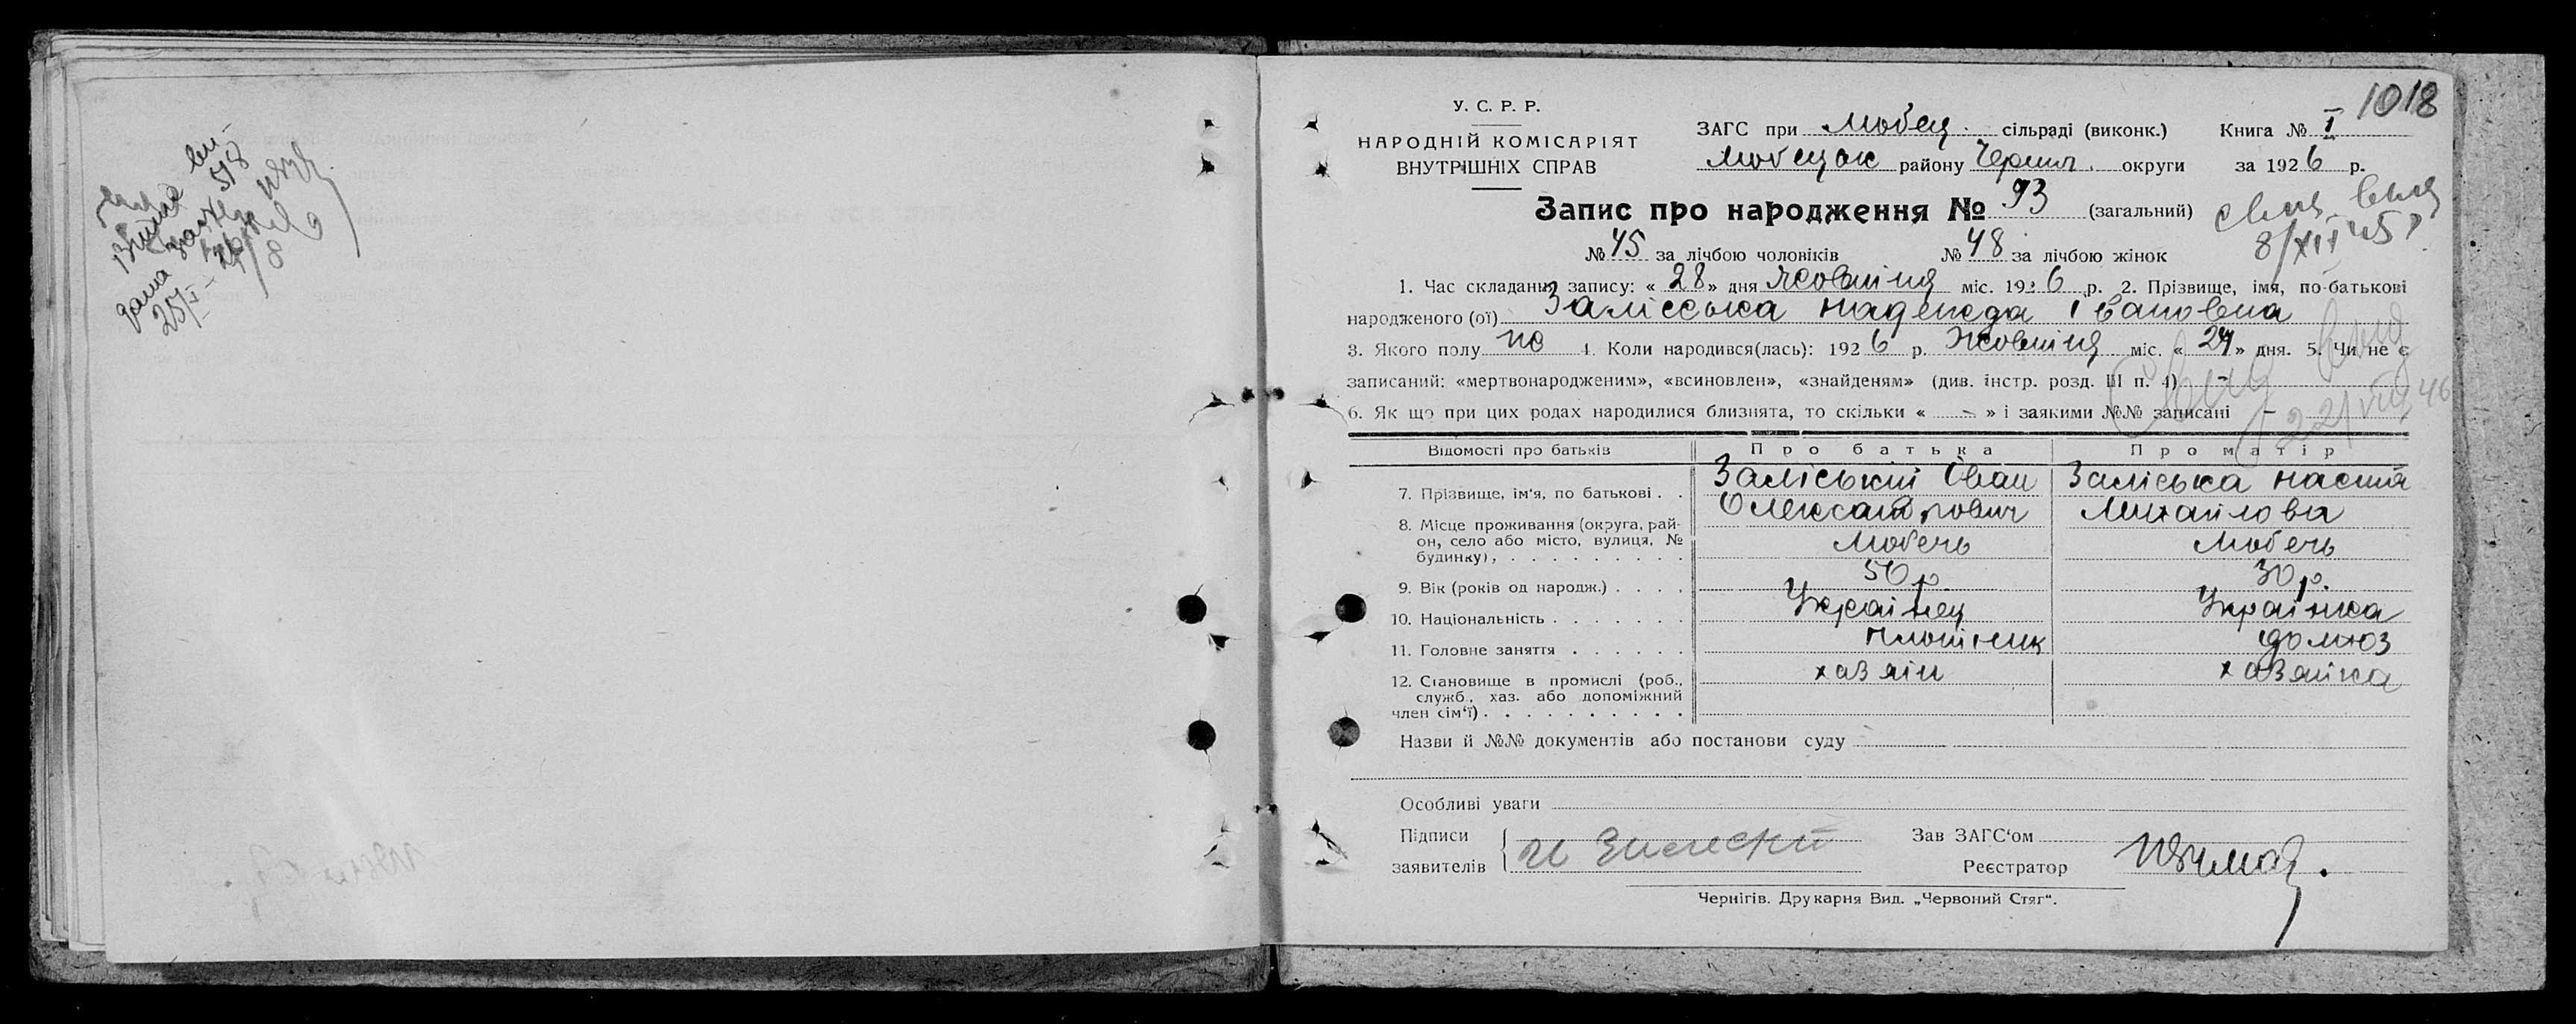 1018
У. С. Р. Р.
НАРОДНІЙ КОМІСАРІЯТ
ВНУТРІШНІХ СПРАВ
ЗАГС при Любец. сільраді (виконк.) Книга № I
Любецьк району Черниг. округи за 1926 р.
Запис про народження № 93 (загальний)
№ 45 за лічбою чоловіків № 48 за лічбою жінок
8/XII 45
1. Час складання запису: « 28 » дня Жовтня міс. 1926 р. 2. Прізвище, імя, по-батькові
народженого (ої) Заліська Надежда Івановна
3. Якого полу жо 4. Коли народився(лась): 1926 р. Жовтня міс. « 24 » дня. 5. Чи не є
записаний: «мертвонародженим», «всиновлен», «знайденям» (див. інстр. розд. III п. 4) -
6. Як що при цих родах народилися близнята, то скільки « - » і заякими №№ записані -
22/VIII 46
Відомості про батьків Про батька Про матір
7. Прізвище, ім'я, по батькові . . Заліський Іван Олександрович Заліська Настя Михайлова
8. Місце проживання (округа, рай-
он, село або місто, вулиця, №
будинку), . . . . . . . . . Любечь Любечь
9. Вік (років од народж.) . . . . 50 р. 30 р.
10. Національність . . . . . . . Українец Українка
11. Головне заняття . . . . . . Плотник домхоз
12. Становище в промислі (роб., хазяін хазяйка
служб., хаз. або допоміжний
член сім'ї) . . . . . . . . . .
Назви й №№ документів або постанови суду
Особливі уваги
Підписи
заявителів
Зав ЗАГС'ом
Реєстратор
Чернігів. Друкарня Вид. „Червоний Стяг“.